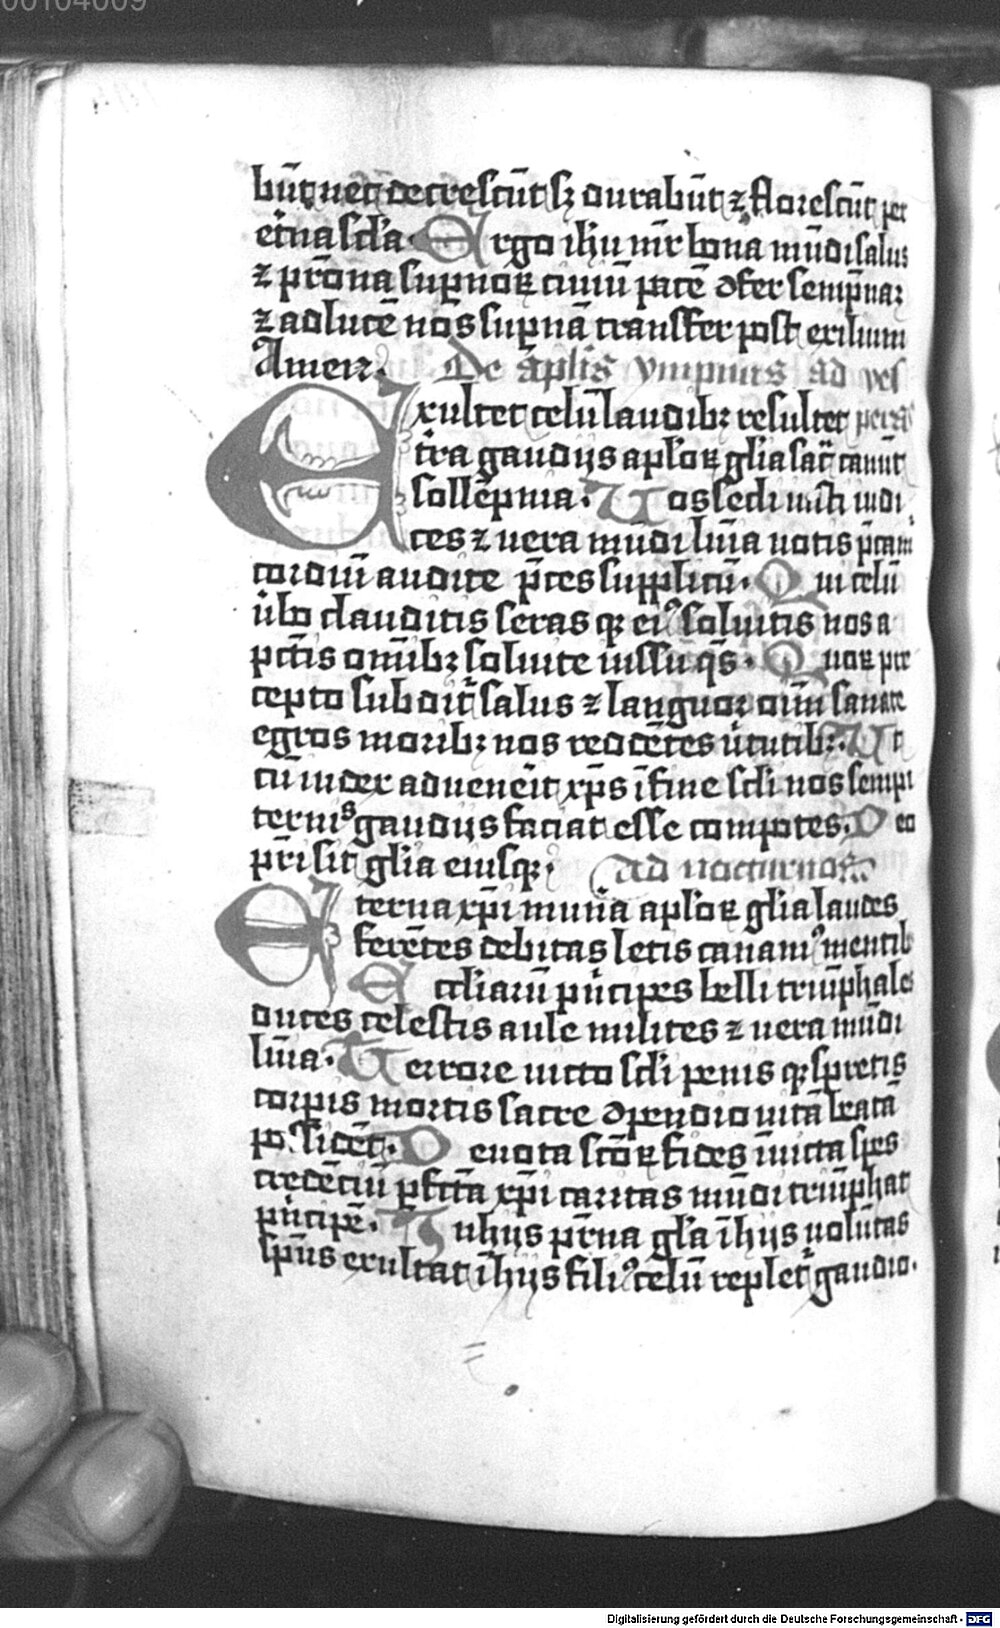 00104009
būt nec decrescūt sꝫ durabūt ⁊ florescūt per
et̄na scl̄a Ergo ihu nr̄ bona mūdi salus
⁊ pr̄ona sup̄noꝝ ciuiū pacē defer semp̄nā
⁊ ad lucē nos sup̄nā transfer post exilium
Amen. De apl̄is ympnus ad ves
Exultet celū laudibꝫ resultet peras
tra gaudijs apl̄oꝝ gl̄ia sac̄ canūt
sollēpnia. Vos secli iusti iudi
ces ⁊ uera mūdi lūia uotis p̄cam̄
cordiū audite p̄ces supplicū. Qui celū
ūbo clauditis seras qꝫ eiꝰ soluitis nos a
pctīs om̄ibꝫ soluite iussu qs̄. Quoꝝ pre
cepto subdit᷑ salus ⁊ languor oīm sanate
egros moribꝫ nos reddētes ūtutibꝫ. Ut
cū iudex aduenēit xp̄s ī fine scl̄i nos sempi
terniꝰ gaudijs faciat esse compotes. Deo
pr̄i sit gl̄ia eiusqꝫ. Ad nocturnos
Eterna xp̄i mun̄a apl̄oꝝ gl̄ia laudes
ferētes debitas letis canamꝰ mentibꝫ
Eccl̄iarū pn̄cipes belli triūphales
duces celestis aule milites ⁊ uera mūdi
lūia. Terrore uicto scl̄i penis qꝫ spretis
corpis mortis sacre dpendio uitā beatā
possidēt. Deuota sctōꝝ fides īuicta spes
credēciū p̄fcta xp̄i caritas mūdi triūphat
pn̄cipē. In hijs pr̄na gl̄a ī hijs uolūtas
sp̄us exultat ī hijs filiꝰ celū replet᷑ gaudio.
Digitalisierung gefördert durch die Deutsche Forschungsgemeinschaft - DFG